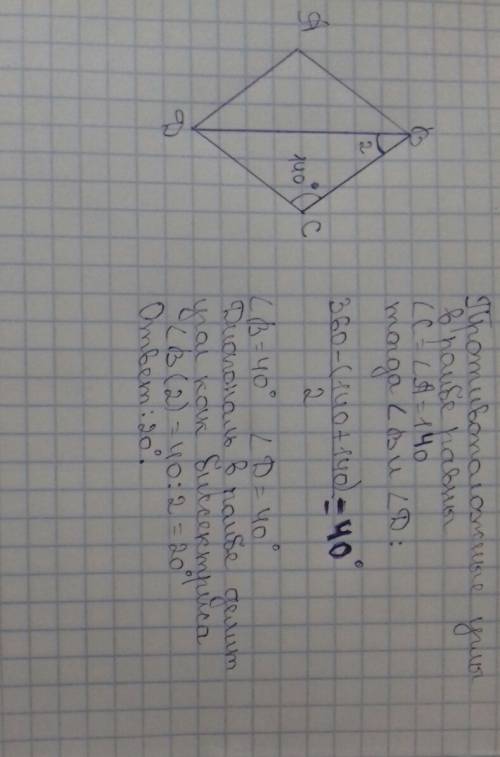 A
D
B
2
140°
C
Противоположные углы
в ромбе равны
∠C = ∠A = 140
тогда ∠B и ∠D:
360-(140+140) = 40°
2
∠B = 40° ∠D = 40°
Диагональ в ромбе делит
угол как биссектриса
∠B(2) = 40:2 = 20°
Ответ: 20°.